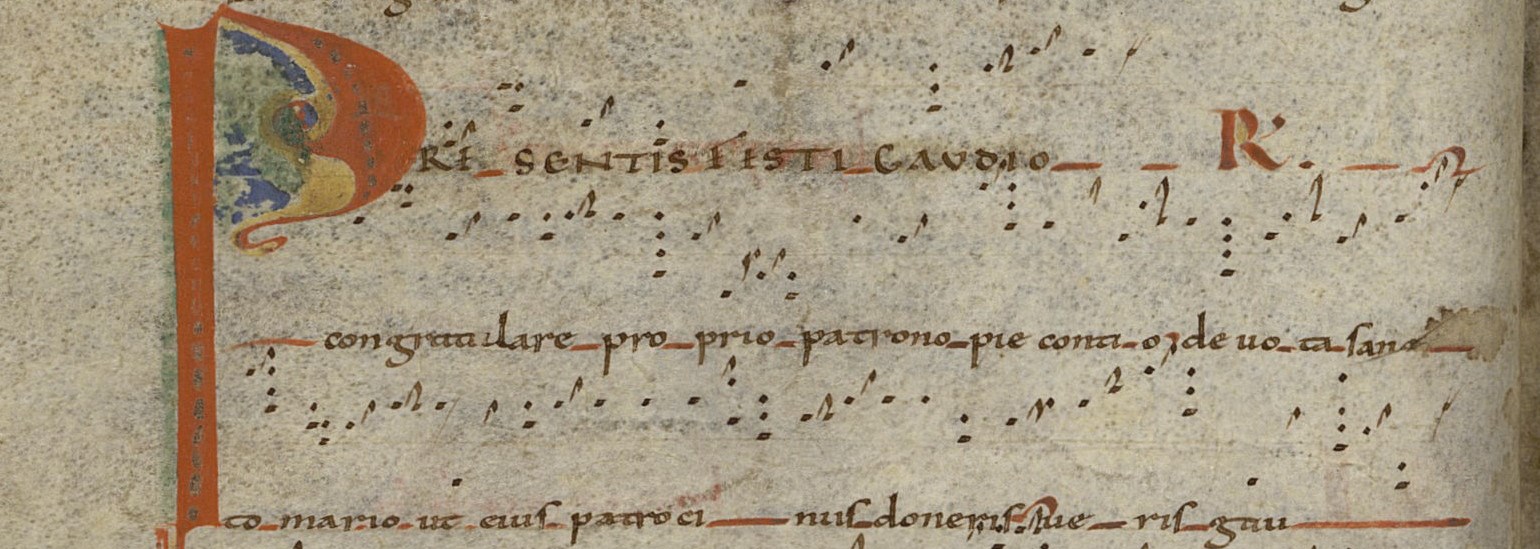 PRE SENTIS FESTI GAUDIO R.
congratulare pro prio patrono pie conci o; de uo ta san
to mario ut eius patroci niis doneris sue ris gau